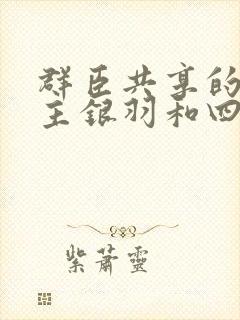 群臣共享的
主银羽和四
紫萧靈